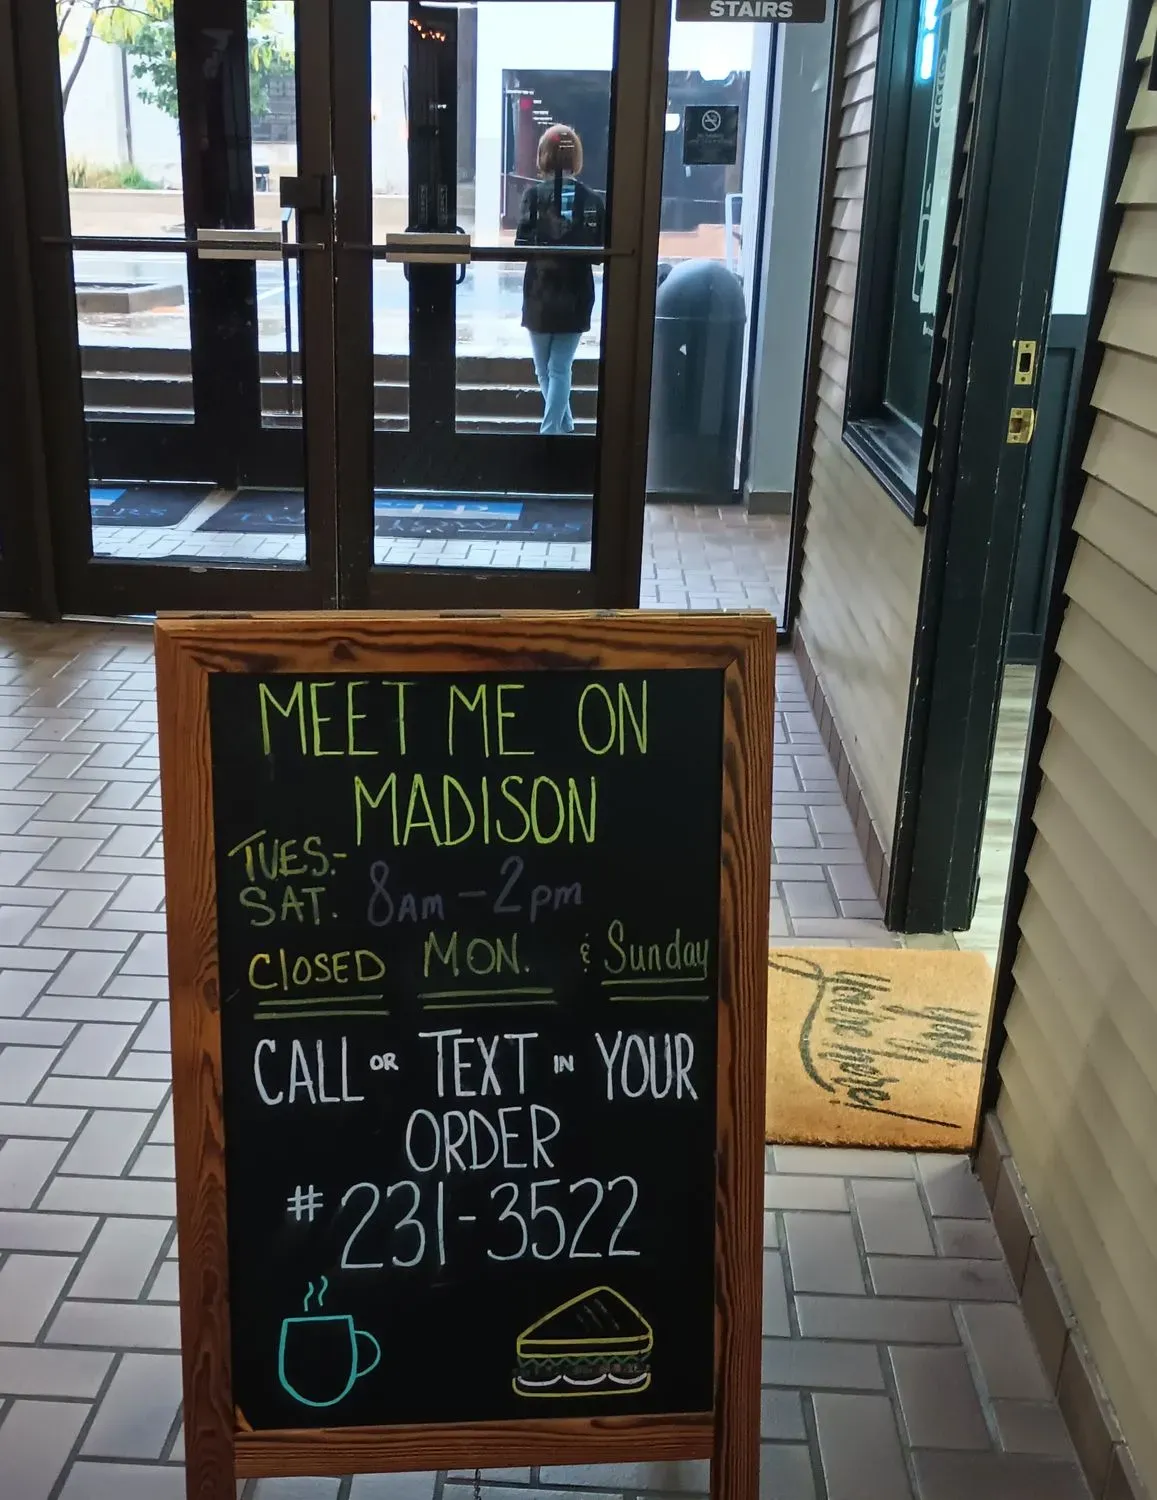 STAIRS
MEET ME ON
MADISON
TUES.-
SAT. 8AM-2pm
CLOSED MON. & Sunday
CALL OR TEXT IN YOUR
ORDER
#231-3522
yay
You're here!